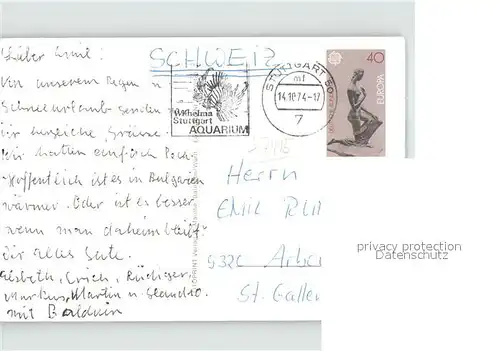 Lieber Emil!
Von unserem Regen u
Schneeurlaub senden
wir herzliche Grüsse.
Wir hatten einfach Pech.
Hoffentlich ist es in Bulgarien
wärmer. Oder ist es besser
wenn man daheim bleibt?
Dir alles Gute.
Elsbeth, Erich, Rüdiger
Markus, Martin u. Claudio
mit Balduin
SCHWEIZ
Wilhelma
Stuttgart
AQUARIUM
STUTTGART 50
mf
14.10.74-17
7
40
EUROPA
Herrn
EMIL
9320 Arbon
St. Gallen
privacy protection
Datenschutz